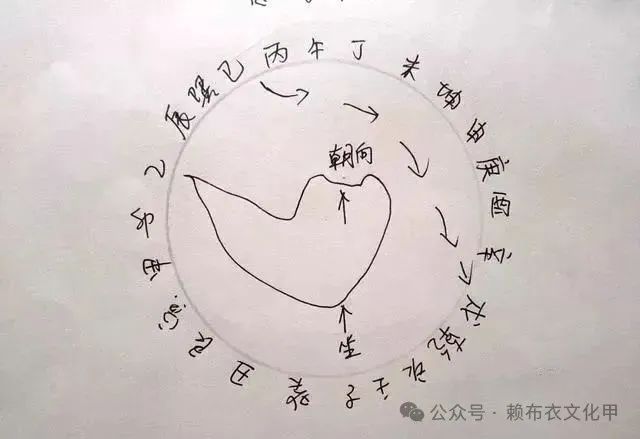 乙辰巽巳丙午丁未坤申庚酉辛戌乾亥壬子癸丑艮寅甲卯
朝向
坐
公众号·赖布衣文化甲